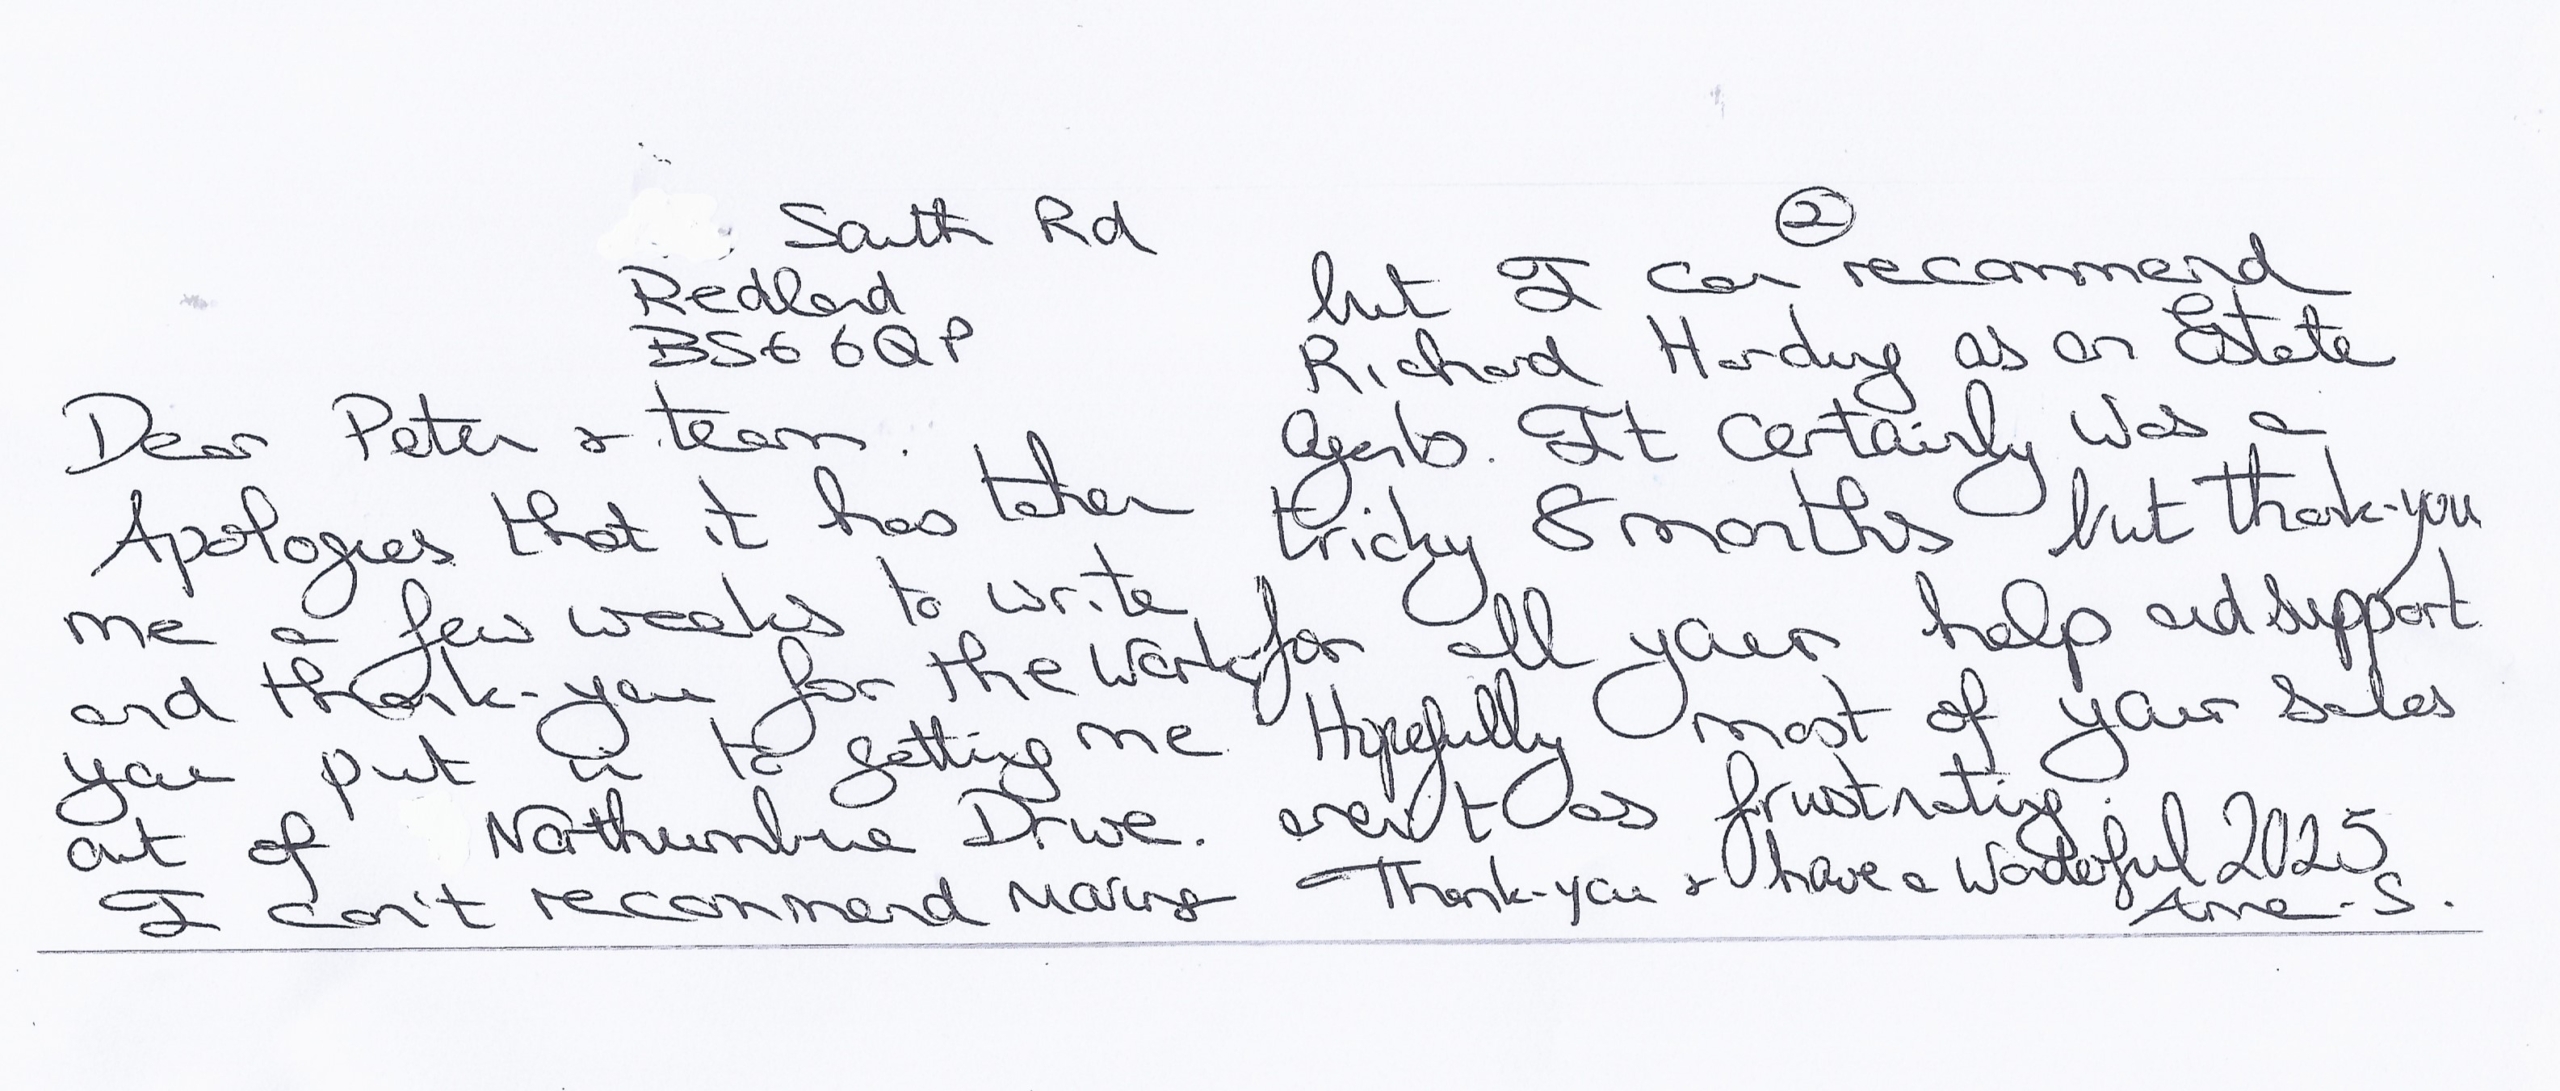 South Rd
Redland
BS6 6QP
Dear Peter & team.
Apologies that it has taken
me a few weeks to write
and thank-you for the work
you put in to getting me
out of Northumbria Drive.
I can't recommend moving
②
but I can recommend
Richard Harding as an Estate
Agents. It certainly was a
tricky 8 months but thank-you
for all your help and support
Hopefully most of your sales
aren't as frustrating.
Thank-you & have a wonderful 2025
Anne - S.